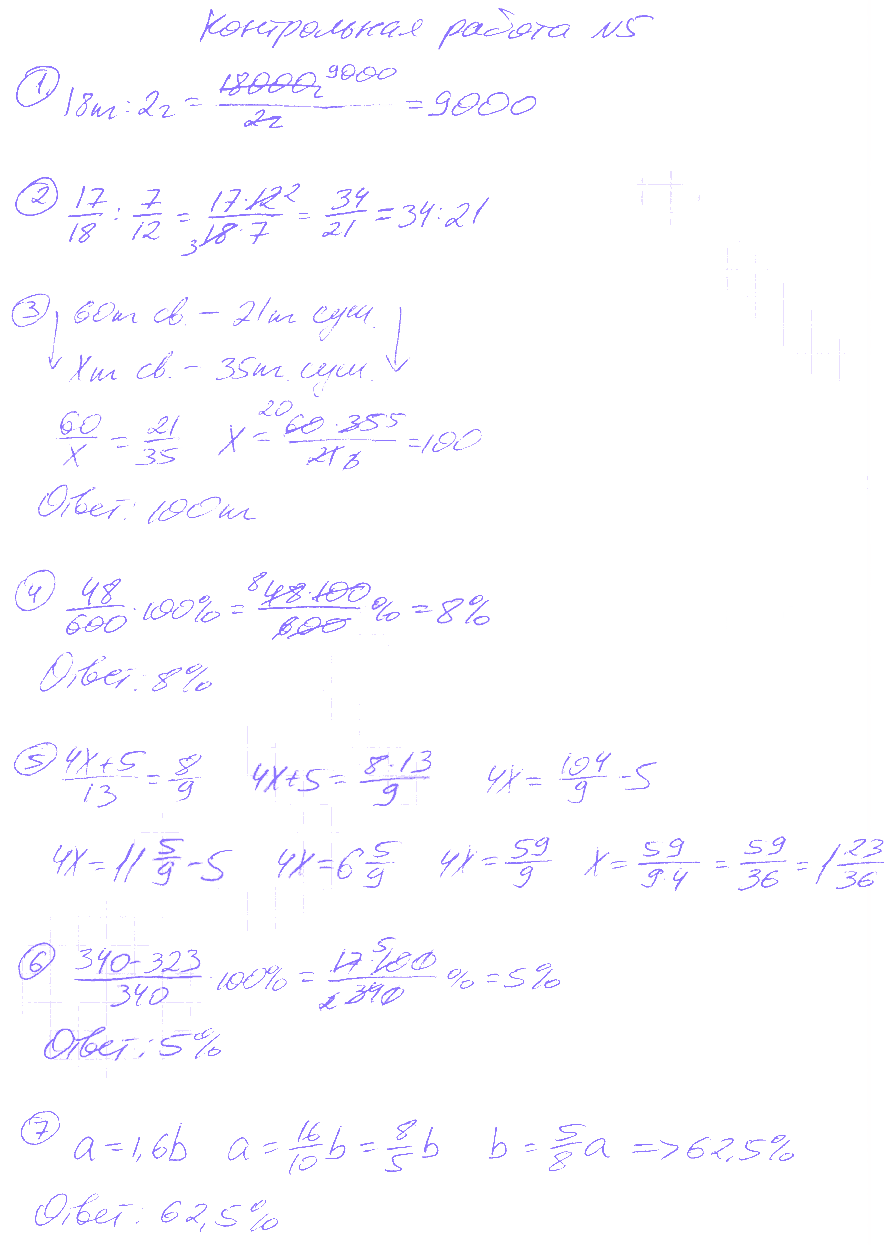 Контрольная работа №5
① 18т : 2г = 18000г 9000 / 2г = 9000
② 17/18 : 7/12 = 17·12 2 / 3 18·7 = 34/21 = 34:21
③ ↓ 60т св. – 21т суш. ↓
Xт св. – 35т. суш.
60/X = 21/35 X = 20 60·35 5 / 21 = 100
Ответ: 100т
④ 48/600 · 100% = 8 48·100/600 % = 8%
Ответ: 8%
⑤ 4X+5/13 = 8/9 4X+5 = 8·13/9 4X = 104/9 – 5
4X = 11 5/9 – 5 4X = 6 5/9 4X = 59/9 X = 59/9·4 = 59/36 = 1 23/36
⑥ 340–323/340 · 100% = 17·100 5 / 340 % = 5%
Ответ: 5%
⑦ a = 1,6b a = 16/10 b = 8/5 b b = 5/8 a => 62,5%
Ответ: 62,5%